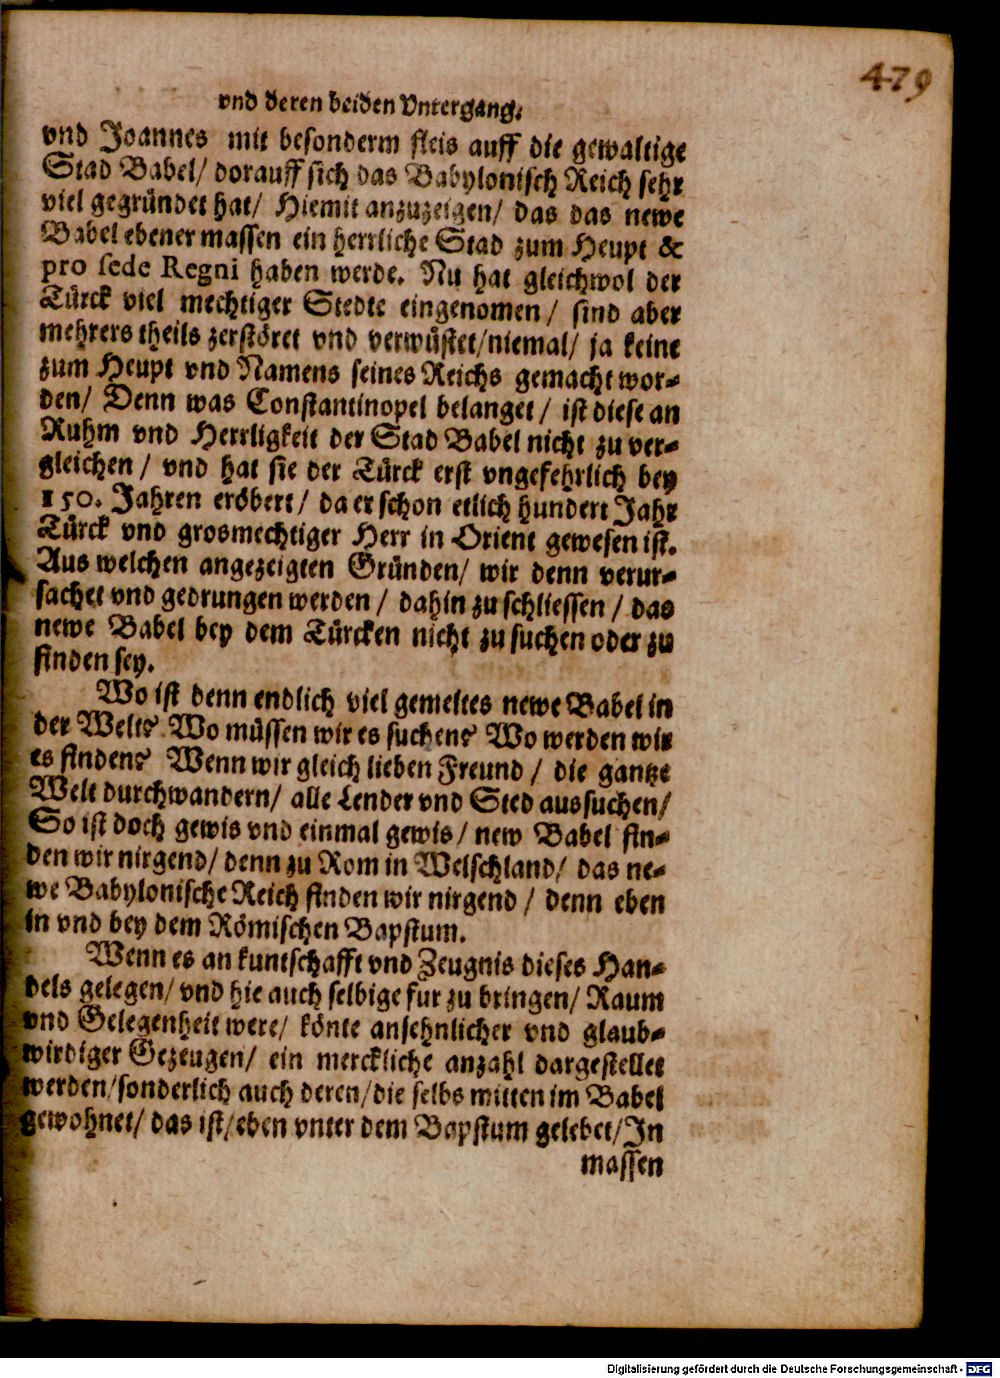 479
vnd deren beiden Vntergang.
vnd Joannes mit besonderm fleis auff die gewaltige
Stad Babel/ dorauff sich das Babylonisch Reich sehr
viel gegründet hat/ Hiemit anzuzeigen/ das das newe
Babel ebener massen ein herrliche Stad zum Heupt &
pro sede Regni haben werde. Nu hat gleichwol der
Türck viel mechtiger Stedte eingenomen/ sind aber
mehrers theils zerstöret vnd verwüstet/niemal/ ja keine
zum Heupt vnd Namens seines Reichs gemacht wor-
den/ Denn was Constantinopel belanget/ ist diese an
Ruhm vnd Herrligkeit der Stad Babel nicht zu ver-
gleichen/ vnd hat sie der Türck erst vngefehrlich bey
150. Jahren eröbert/ da er schon etlich hundert Jahr
Türck vnd grosmechtiger Herr in Orient gewesen ist.
Aus welchen angezeigten Gründen/ wir denn verur-
sachet vnd gedrungen werden/ dahin zu schliessen/ das
newe Babel bey dem Türcken nicht zu suchen oder zu
finden sey.
Wo ist denn endlich viel gemeltes newe Babel in
der Welt? Wo müssen wir es suchen? Wo werden wir
es finden? Wenn wir gleich lieben Freund/ die gantze
Welt durchwandern/ alle Lender vnd Sted aussuchen/
So ist doch gewis vnd einmal gewis/ new Babel fin-
den wir nirgend/ denn zu Rom in Welschland/ das ne-
we Babylonische Reich finden wir nirgend/ denn eben
in vnd bey dem Römischen Bapstum.
Wenn es an kuntschafft vnd Zeugnis dieses Han-
dels gelegen/ vnd hie auch selbige fur zu bringen/ Raum
vnd Gelegenheit were/ könte ansehnlicher vnd glaub-
wirdiger Gezeugen/ ein merckliche anzahl dargestellet
werden/sonderlich auch deren/die selbs mitten im Babel
gewohnet/ das ist/eben vnter dem Bapstum gelebet/In
massen
Digitalisierung gefördert durch die Deutsche Forschungsgemeinschaft - DFG